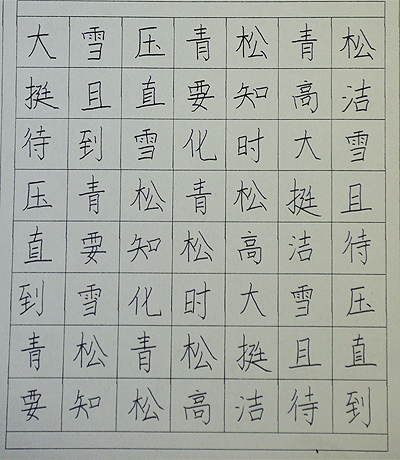 大雪压青松青松
挺且直要知高洁
待到雪化时大雪
压青松青松挺且
直要知松高洁待
到雪化时大雪压
青松青松挺且直
要知松高洁待到